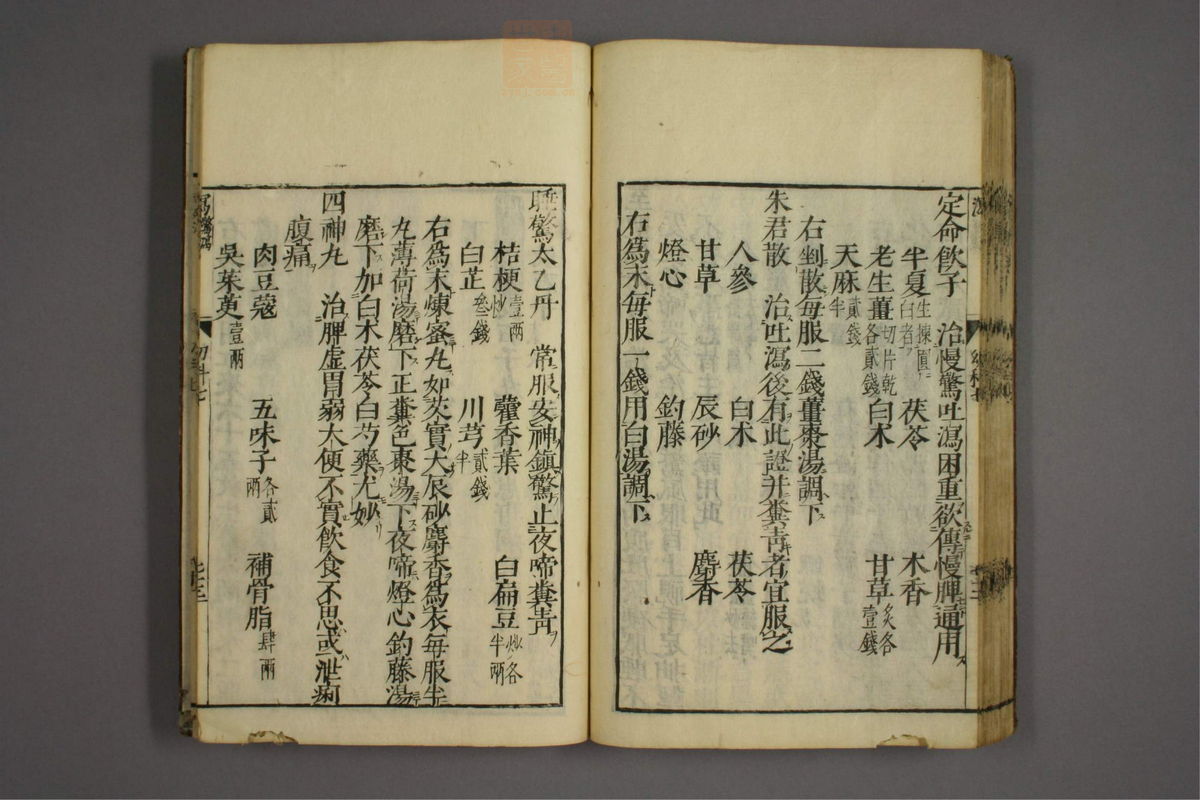 定命飲子　治慢驚吐瀉困重欲傳慢脾通用
半夏生揀圓白者　茯苓　木香
老生薑切片乾各貳錢　白朮　甘草炙各壹錢
天麻貳錢半
右剉散每服二錢薑棗湯調下
朱君散　治吐瀉後有此證并糞青者宜服之
人參　白朮　茯苓
甘草　辰砂　麝香
燈心　釣藤
右為末每服一錢用白湯調下
睡驚太乙丹　常服安神鎮驚止夜啼糞青
桔梗炒壹兩　藿香葉　白扁豆炒各半兩
白芷叄錢　川芎貳錢半
右為末煉蜜丸如芡實大辰砂麝香為衣每服半
丸薄荷湯磨下正糞色棗湯下夜啼燈心釣藤湯
磨下加白朮茯苓白芍藥尤妙
四神丸　治脾虛胃弱大便不實飲食不思或泄痢
腹痛
肉豆蔻　五味子各貳兩　補骨脂肆兩
吳茱萸壹兩